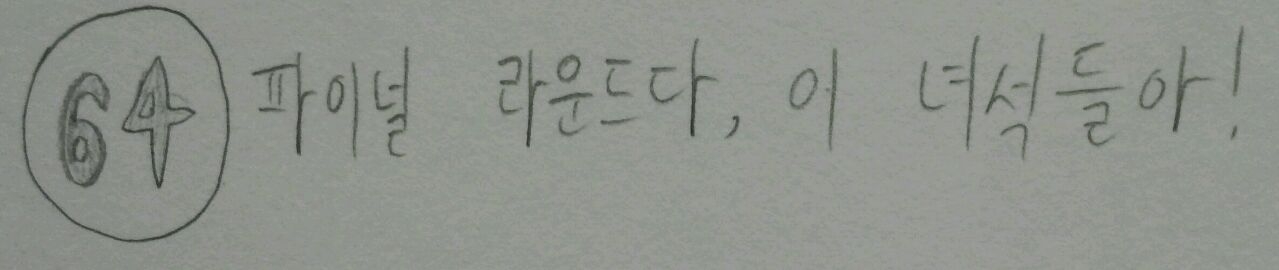 64 파이널 라운드다, 이 녀석들아!